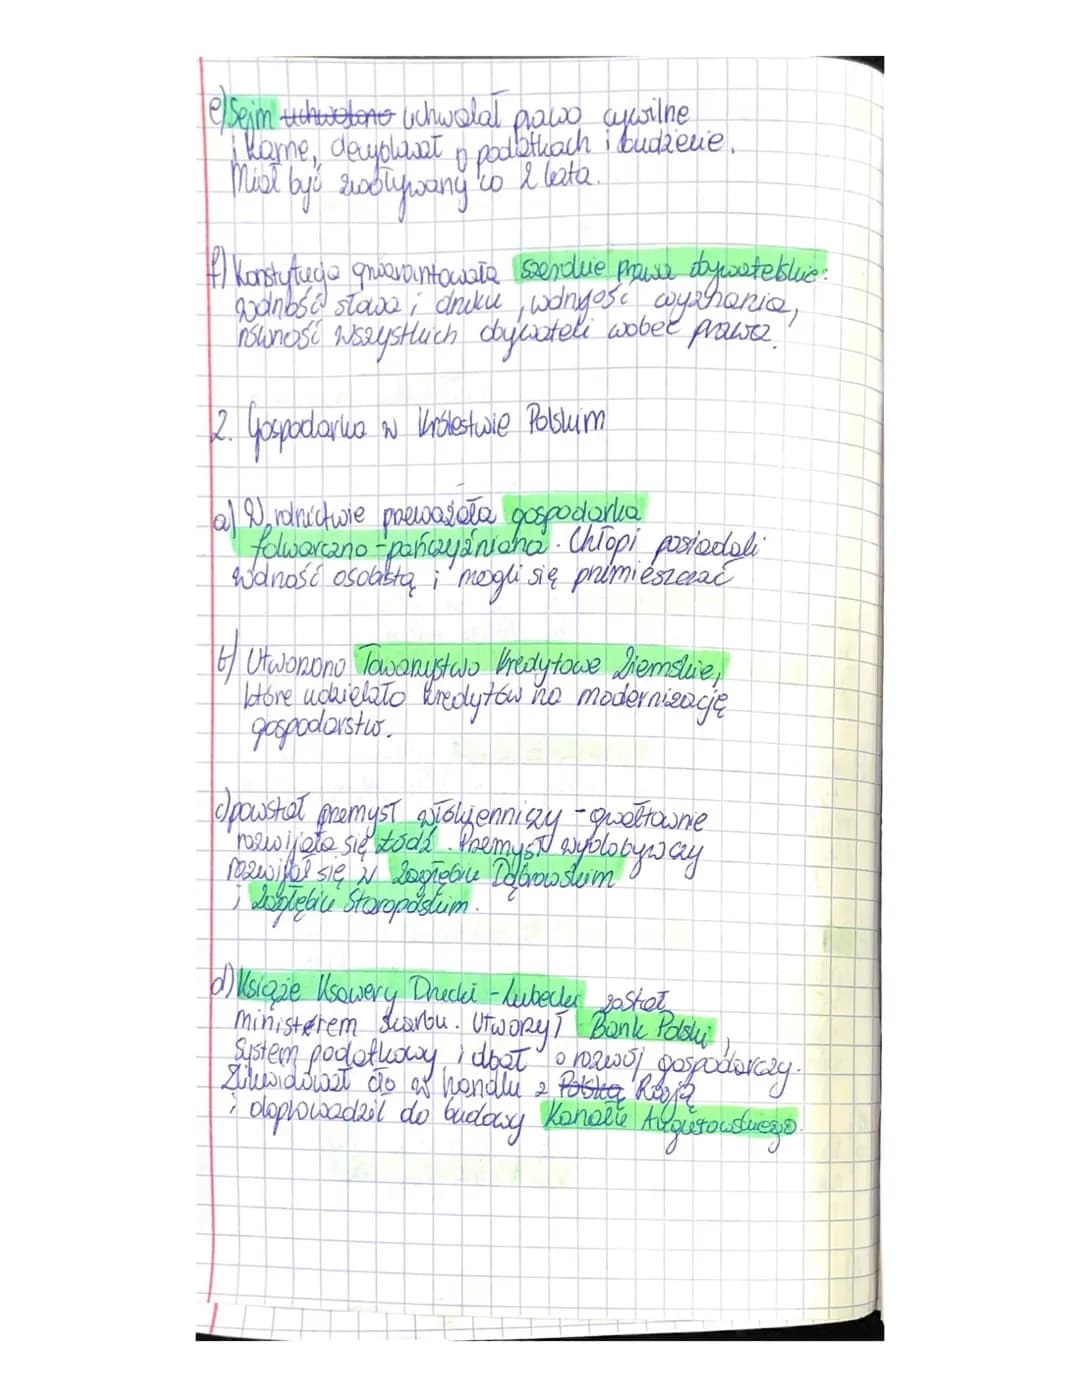 e) Sejm uchwolono uchwalał prawo cywilne
i karne, decydował o podatkach i budżecie.
Miał być zwoływany co 2 lata.
f) Konstytucja gwarantowała szerokie prawa obywatelskie:
wolność słowa i druku, wolność wyznania,
równość wszystkich obywateli wobec prawa.
2. Gospodarka w Królestwie Polskim
a) W rolnictwie przeważała gospodarka
folwarczno-pańszczyźniana. Chłopi posiadali
wolność osobistą i mogli się przemieszczać
b) Utworzono Towarzystwo Kredytowe Ziemskie,
które udzielało kredytów na modernizację
gospodarstw.
c) powstał przemysł włókienniczy - gwałtownie
rozwijała się Łódź. Przemysł wydobywczy
rozwijał się w Zagłębiu Dąbrowskim
i Zagłębiu Staropolskim.
d) Książe Ksawery Drucki-Lubecki został
ministrem skarbu. Utworzył Bank Polski,
System podatkowy i dbał o rozwój gospodarczy.
Zlikwidował cło w handlu z Polską Rosją
i doprowadził do budowy Kanału Augustowskiego.